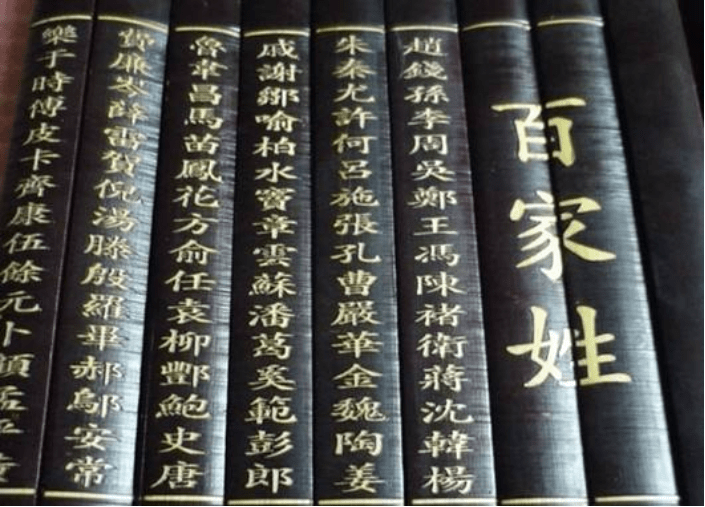 百家姓
趙錢孫李周吳鄭王馮陳褚衛蔣沈韓楊
朱秦尤許何呂施張孔曹嚴華金魏陶姜
戚謝鄒喻柏水竇章雲蘇潘葛奚範彭郎
魯韋昌馬苗鳳花方俞任袁柳酆鮑史唐
費廉岑薛雷賀倪湯滕殷羅畢郝鄔安常
樂于時傅皮卞齊康伍餘元卜顧孟平黃